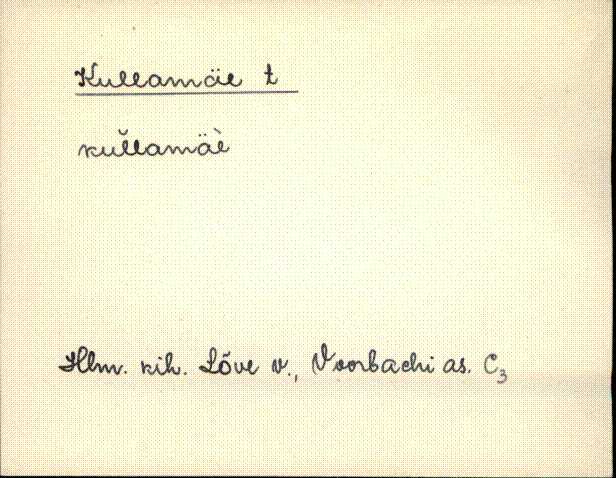 Kullamäe t
kul̆lamäè
Hlm. kih. Lõve v., Voorbachi as. C₃